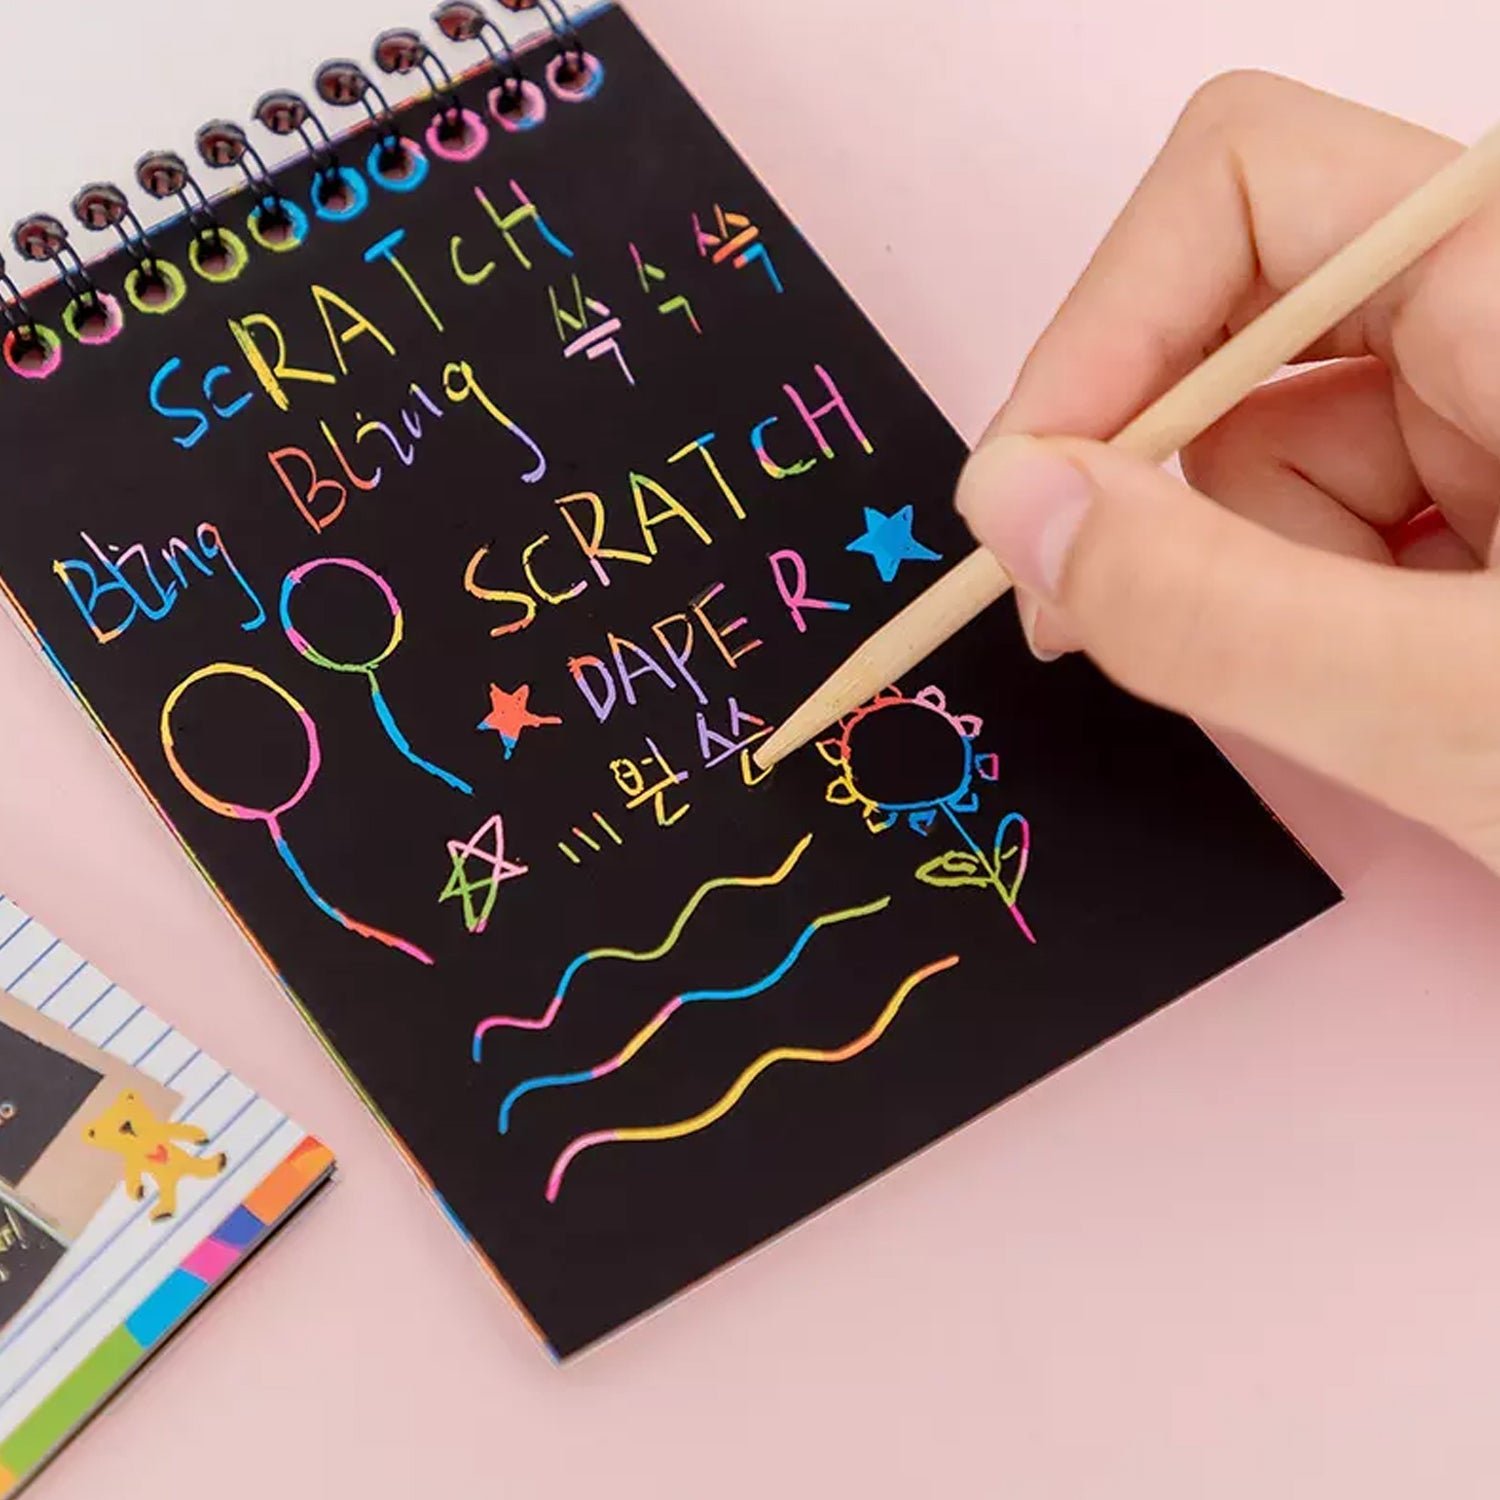 SCRATCH
쓱 슥 쓱
Bling
Bling
SCRATCH
DAPER
뭔 쓰